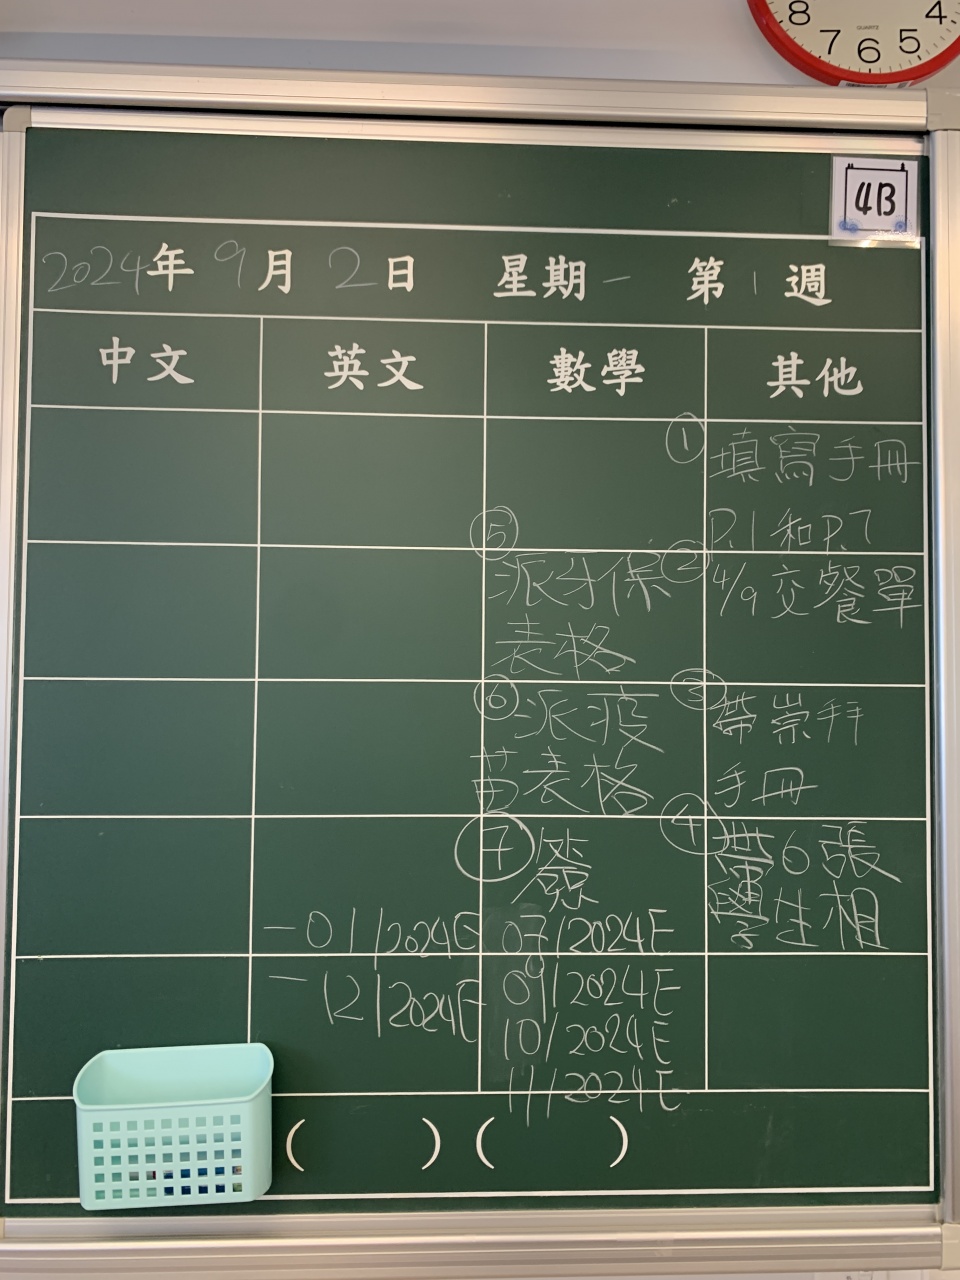 8 7 6 5 4
QUARTZ
4B
2024年9月2日 星期一 第1週
中文 英文 數學 其他
① 填寫手冊
P.1和P.7
② 4/9交餐單
③ 帶崇拜
手冊
④ 帶6張
學生相
⑤ 派牙保
表格
⑥ 派疫
苗表格
⑦ 簽
-01/2024E
-12/2024E
07/2024E
09/2024E
10/2024E
11/2024E
( ) ( )